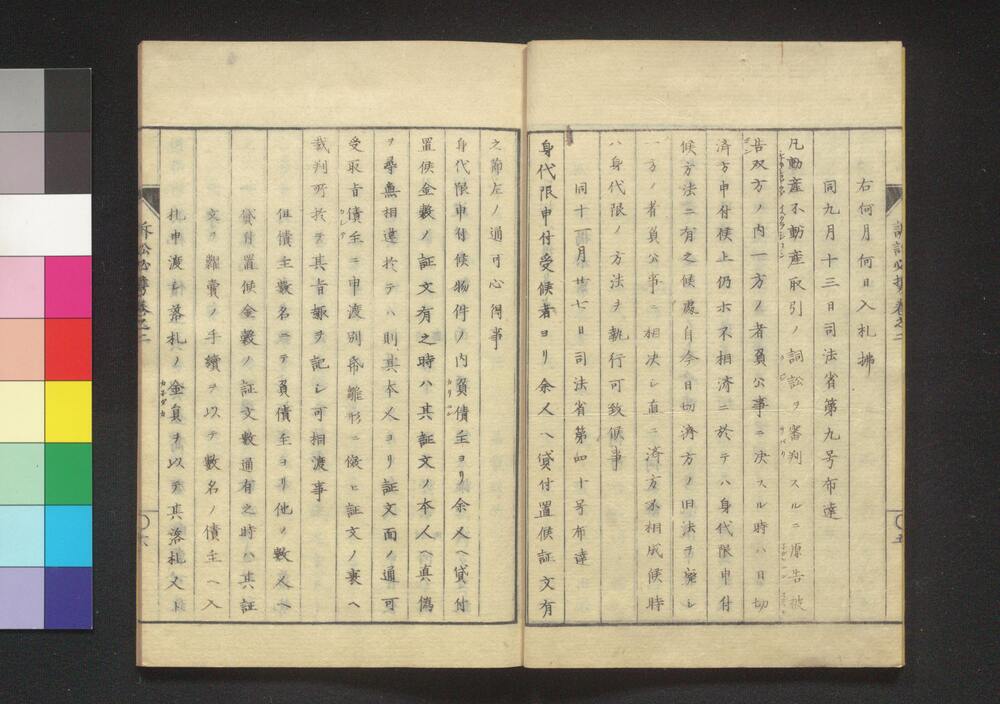 右何月何日入札拂
同九月十三日司法省第九号布達
凡動産不動産取引ノ詞訟ヲ審判スルニ原告被
告双方ノ内一方ノ者負公事ニ決スル時ハ日切
済方申付候上仍ホ不相済ニ於テハ身代限申付
候方法ニ有之候處自今日切済方ノ旧法ヲ廃シ
一方ノ者負公事ニ相决シ直ニ済方不相成候時
ハ身代限ノ方法ヲ執行可致候事
同十一月廿七日司法省第四十号布達
身代限申付受候者ヨリ余人ヘ貸付置候証文有
之節左ノ通可心得事
身代限申付候物件ノ内負債主ヨリ余人ヘ貸付
置候金穀ノ証文有之時ハ其証文ノ本人ヘ真偽
ヲ尋無相違於テハ則其本人ヨリ証文面ノ通可
受取旨債主ニ申渡別帋雛形ニ倣ヒ証文ノ裏ヘ
裁判所於テ其旨趣ヲ記シ可相渡事
但債主數名ニテ負債主ヨリ他ノ數人ヘ
貸付置候金穀ノ証文數通有之時ハ其証
文ヲ糶賣ノ手續ヲ以テ數名ノ債主ヘ入
札申渡シ落札ノ金負ヲ以テ其落札人ヨ
訴訟必携巻之二
五
六